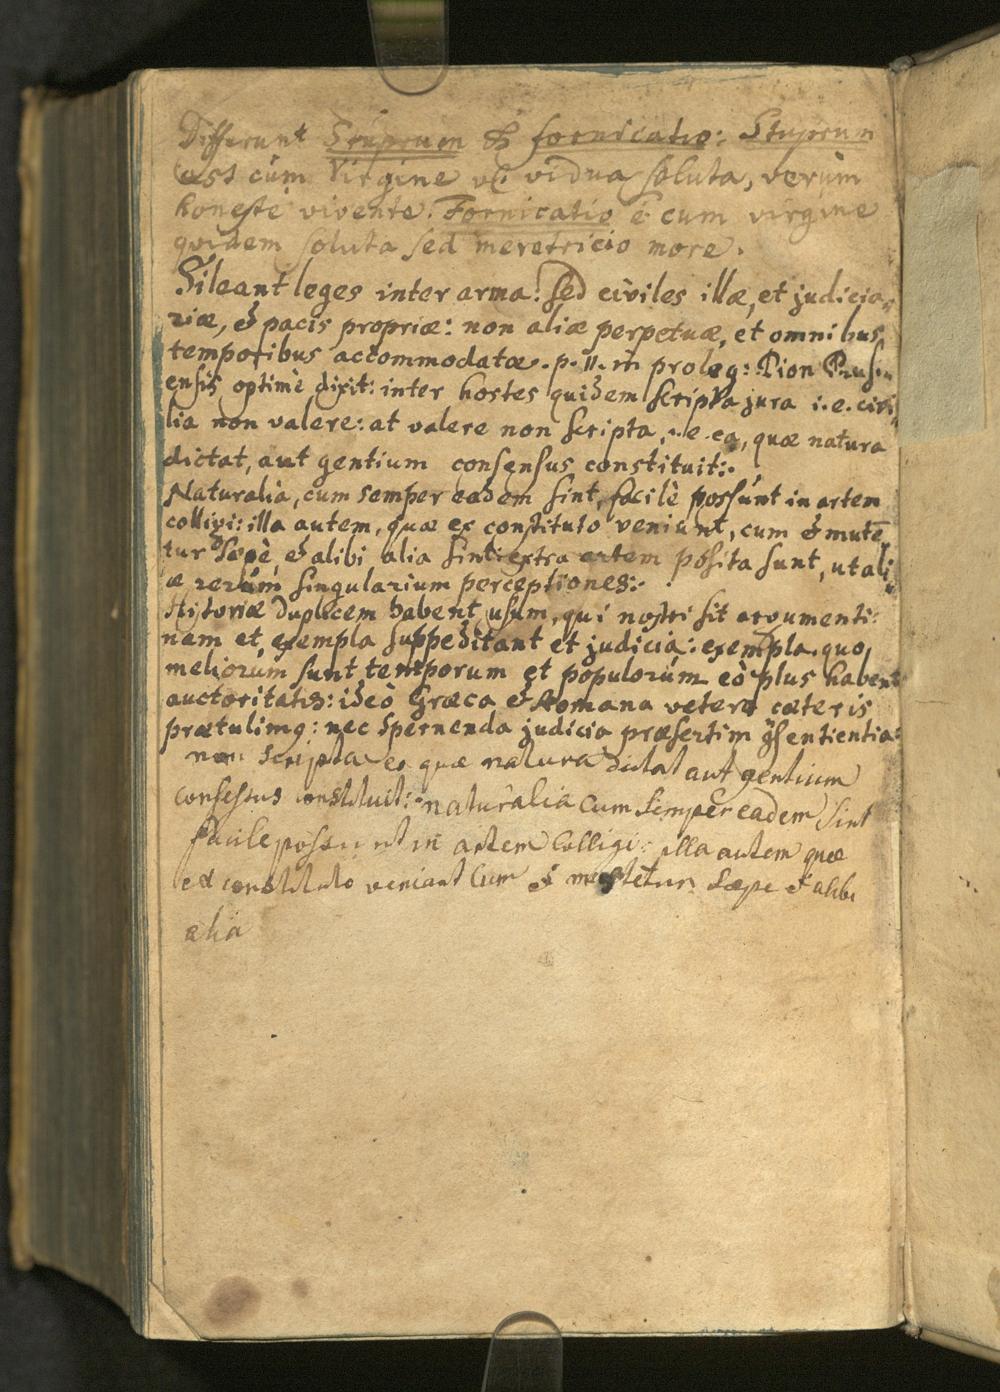 Differunt Stuprum & fornicatio: Stuprum
est cúm Virgine vel vidua soluta, verùm
honeste vivente. Fornicatio ē cum virgine
quidem soluta sed meretricio more.
Sileant leges inter arma: sed civiles illæ, et judicia
riæ, & pacis propriæ: non aliæ perpetuæ, et omnibus
temporibus accommodatæ. p. 11. in proleg: Dion Prusi
ensis optimè dixit: inter hostes quidem scripta jura i.e. civi
lia non valere: at valere non scripta, i.e. ea, quæ natura
dictat, aut gentium consensus constituit:.
Naturalia, cum semper eadem sint, facilè possúnt in artem
colligi: illa autem, quæ ex constituto veniunt, cum & mutē
tur sæpè, & alibi alia sint: extra artem posita sunt, ut ali
æ rerúm singularium perceptiones:.
Historiæ duplicem habent usum, qui nostri sit argumenti:
nam et exempla suppeditant et judicia: exempla quo
meliorúm sunt temporum et populorúm eò plus habent
auctoritatis: ideò Græca & Romana vetera cæteris
prætulimq: nec spernenda judicia præsertim
non scripta ea quæ natura dictat aut gentium
consessus constituit:. naturalia cum semper eadem sint
facile possunt in artem colligi: illa autem quæ
ex constituto veniant cum & mutetur sæpe & alibi
alia